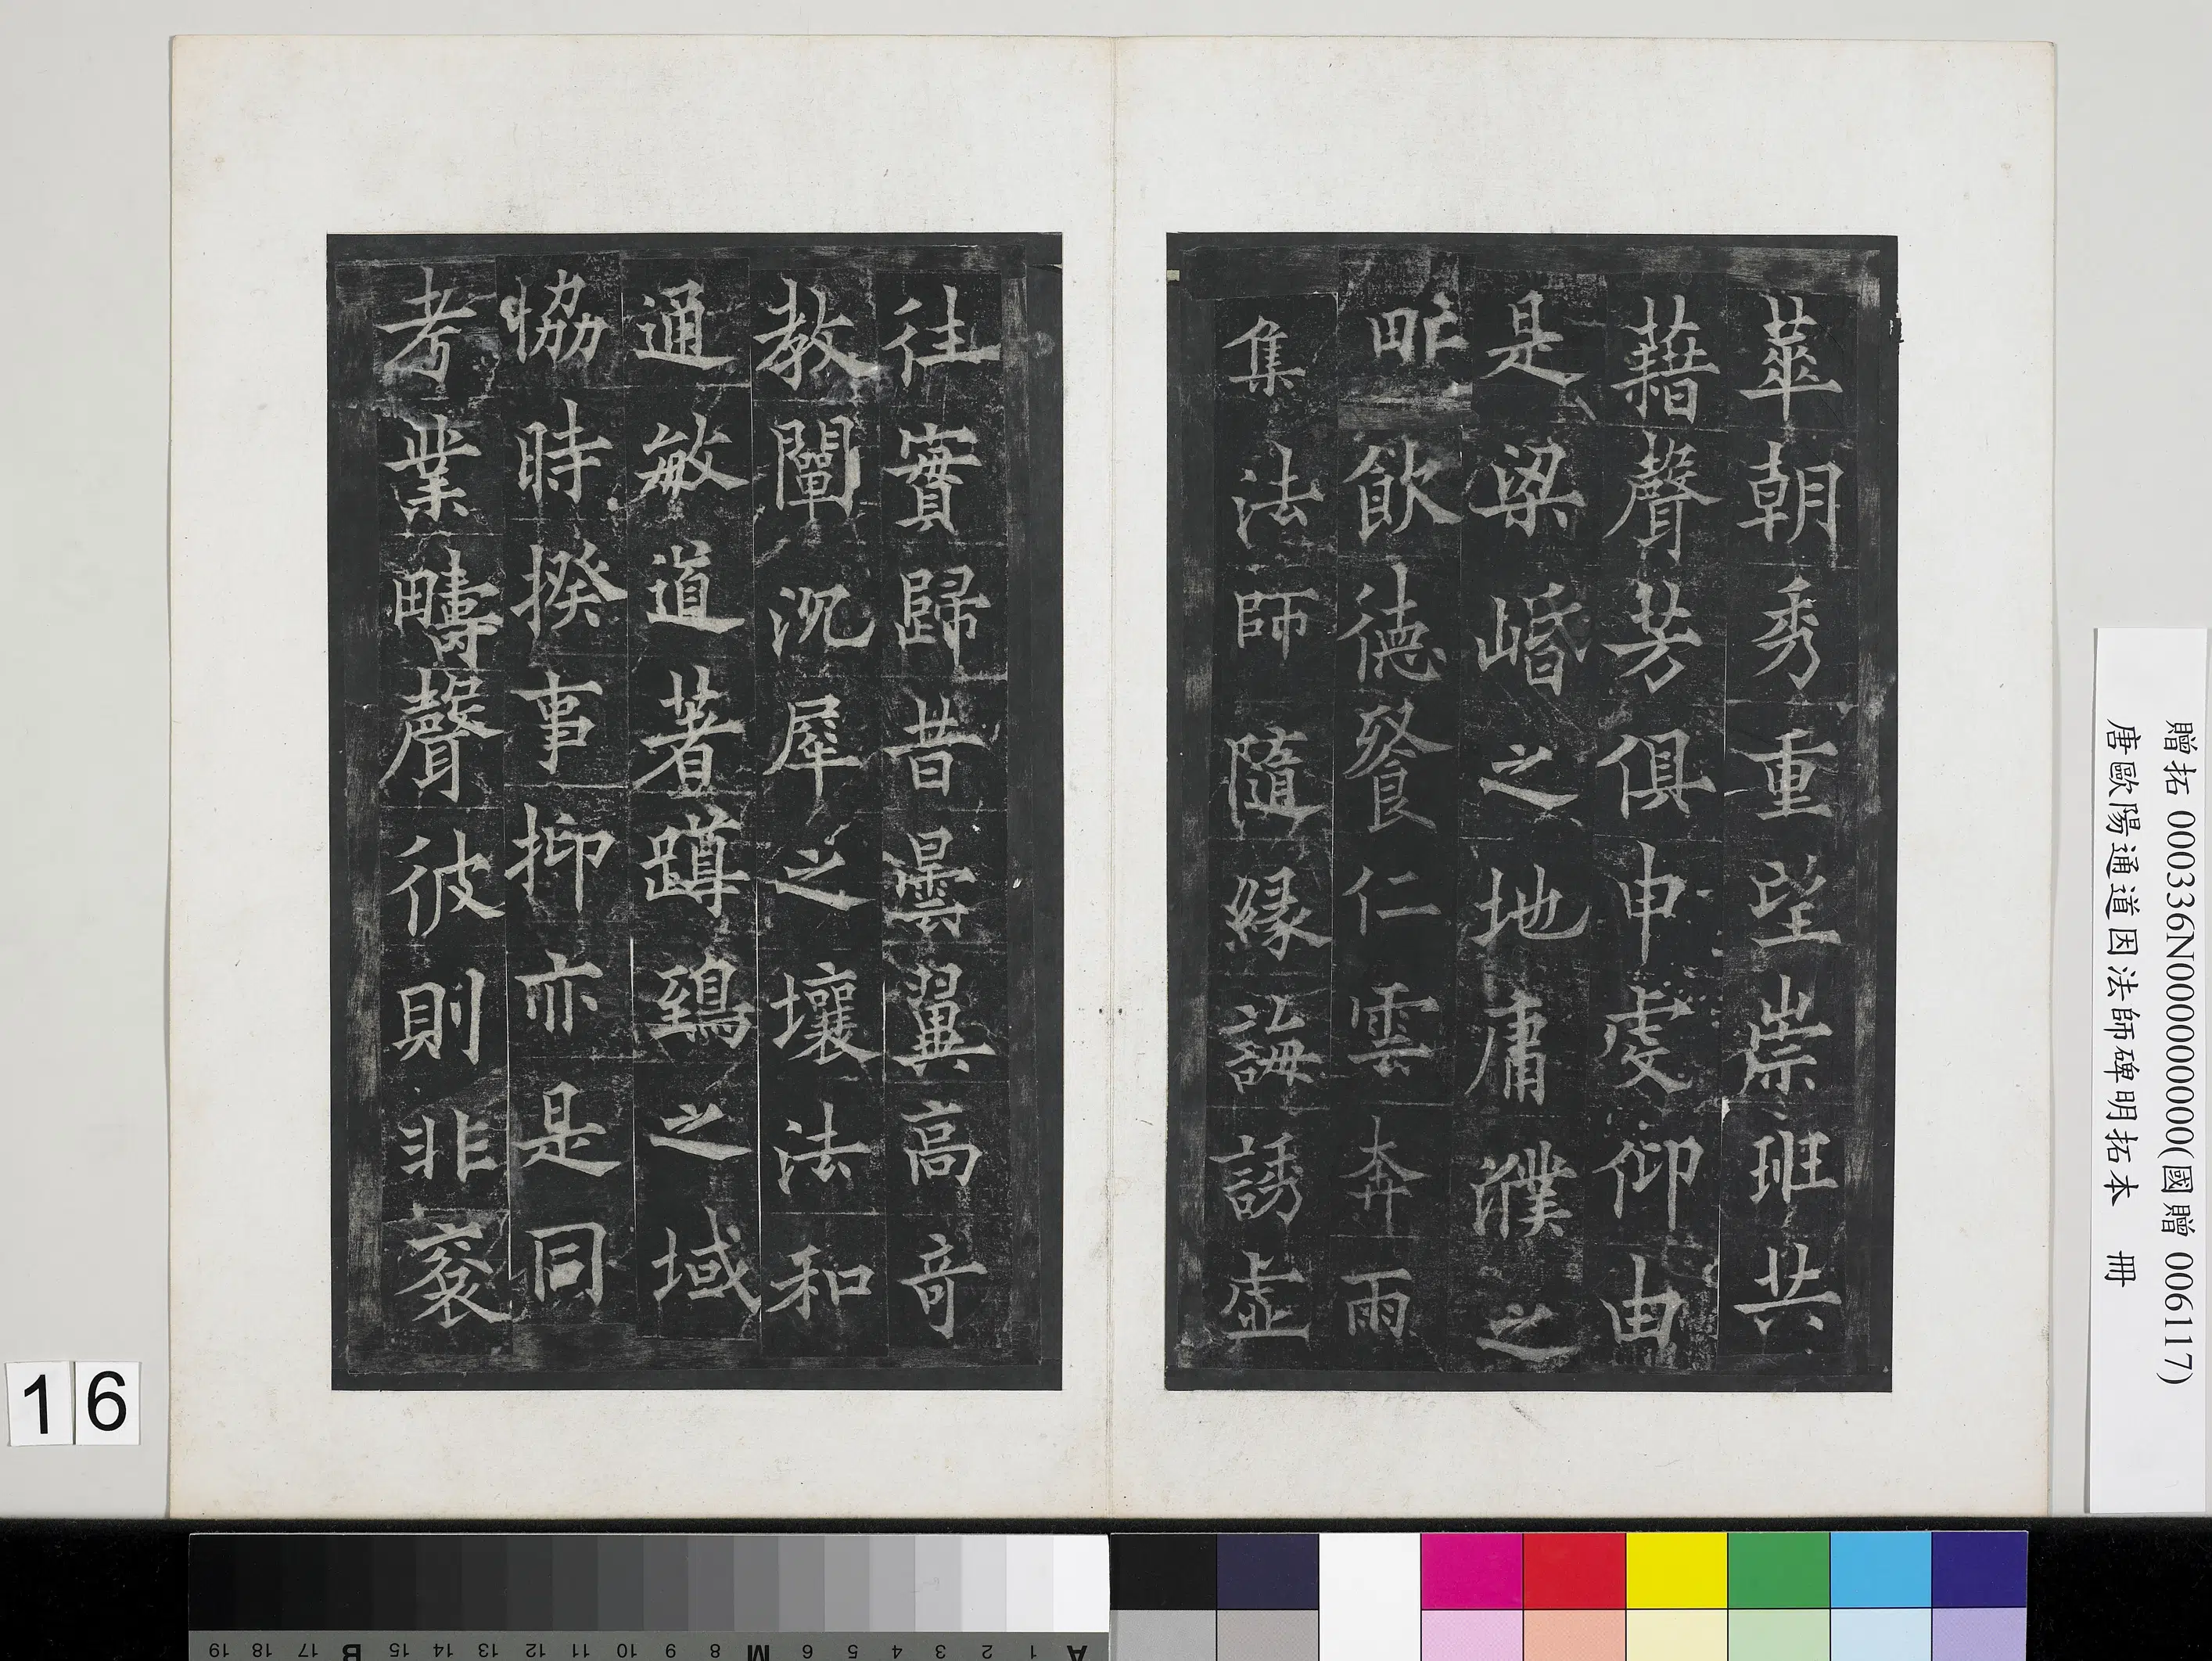 莘朝秀重望崇班共
藉聲芳俱申虔仰由
是梁㟭之地庸濮之
甿飲德飡仁雲奔雨
集法師隨緣誨誘虛
往實歸昔曇翼高奇
教闡沉犀之壤法和
通敏道著蹲鵄之域
協時揆事抑亦是同
考業疇聲彼則非袞
贈拓 000336N000000000(國贈 006117)
唐歐陽通道因法師碑明拓本 冊
16
A 1 2 3 4 5 6 M 8 9 10 11 12 13 14 15 B 17 18 19